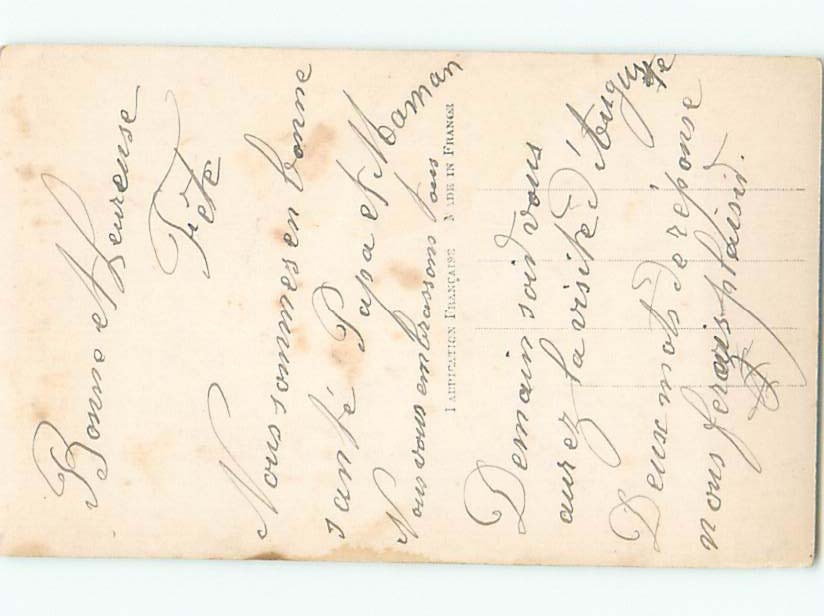 Bonne et Heureuse
Fête
Nous sommes en bonne
santé Papa et Maman
Nous vous embrassons tous
FABRICATION FRANÇAISE MADE IN FRANCE
Demain soir vous
aurez la visite d'Auguste
Deux mots de réponse
nous ferais plaisir.